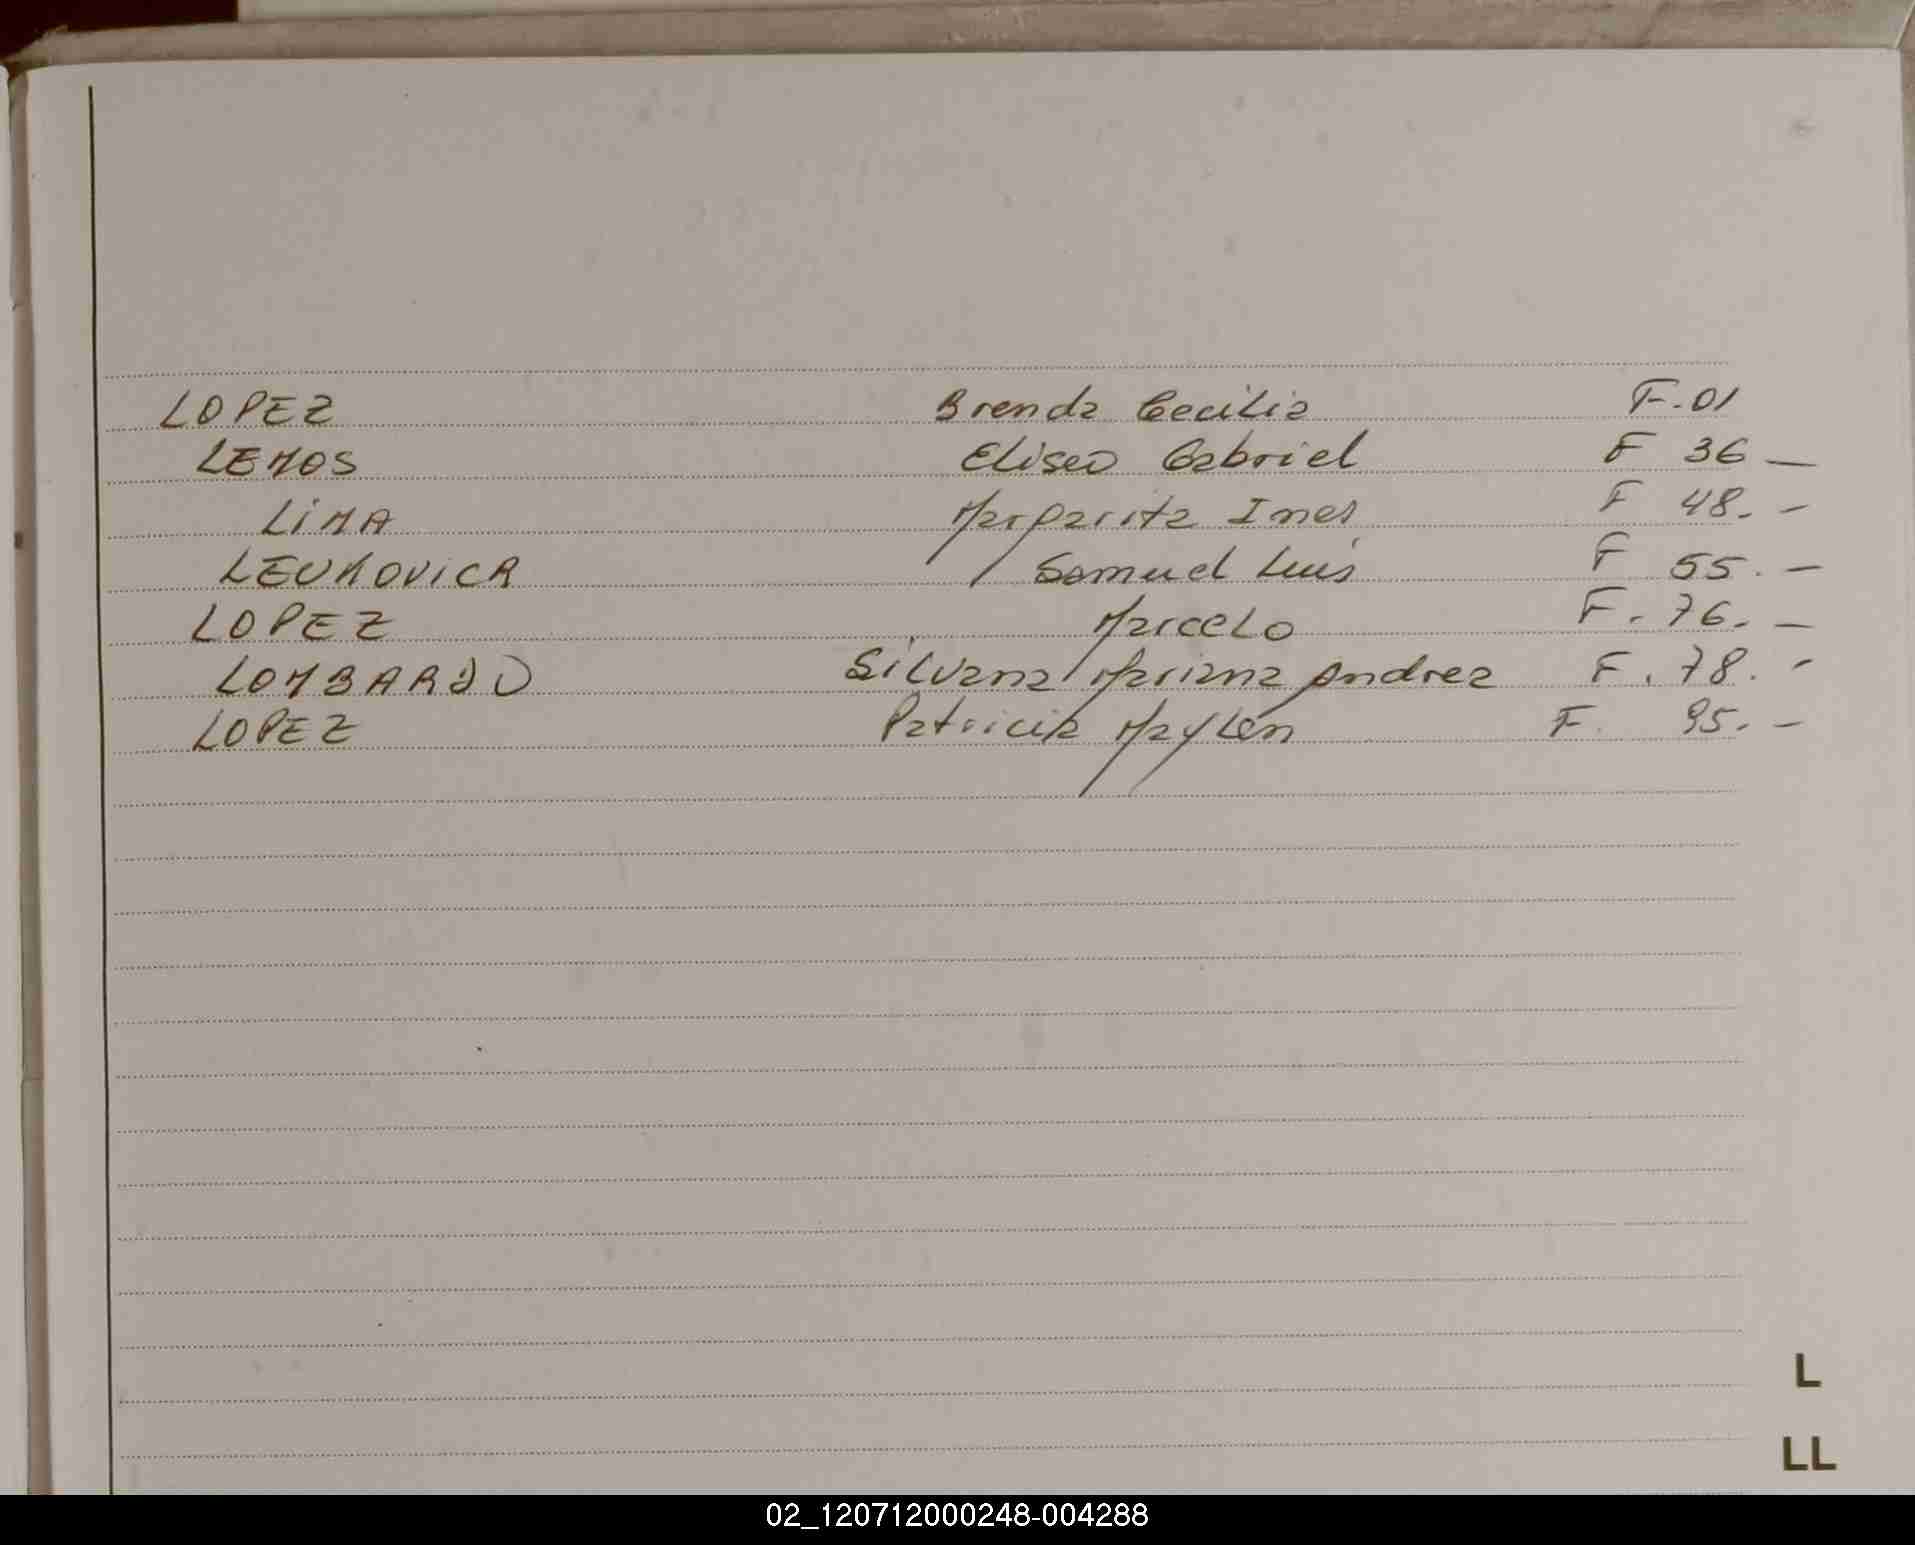 LOPEZ Brenda Cecilia F.01
LEMOS Eliseo Gabriel F 36 —
LiMA Margarita Ines F 48. -
LEUMOVICR Samuel Luis F 55. -
LOPEZ Marcelo F. 76. -
LOMBARDO Silvana Mariana Andrea F. 78. -
LOPEZ Patricia Maylen F. 95. -
L
LL
02_120712000248-004288